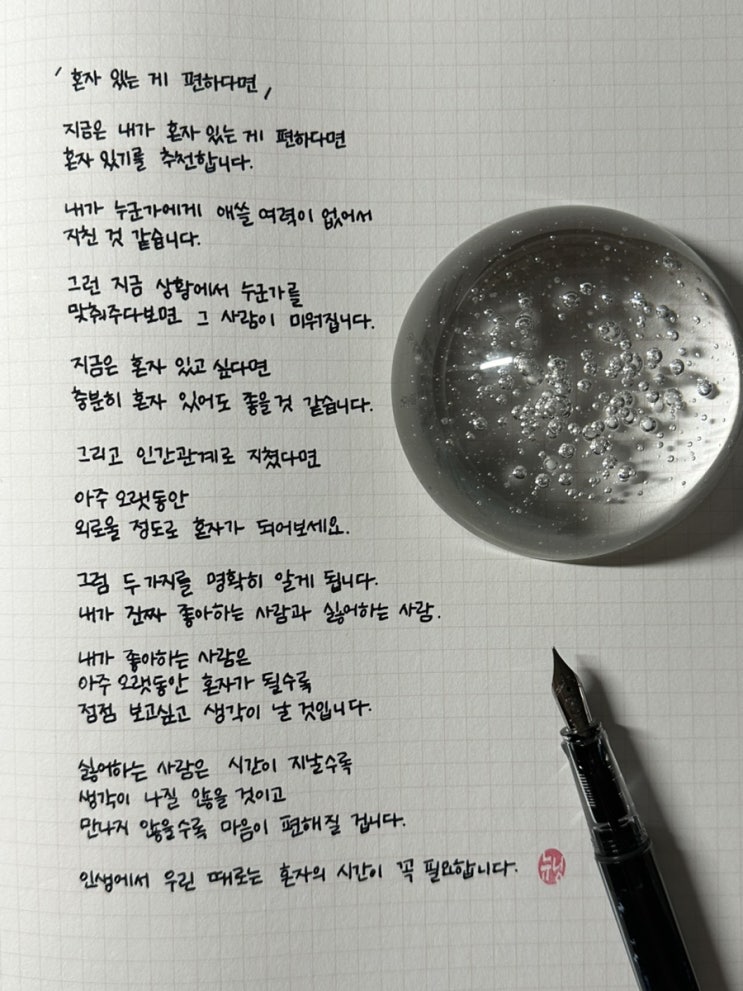 ' 혼자 있는 게 편하다면 ,
지금은 내가 혼자 있는 게 편하다면
혼자 있기를 추천합니다.
내가 누군가에게 애쓸 여력이 없어서
지친 것 같습니다.
그런 지금 상황에서 누군가를
맞춰주다보면 그 사람이 미워집니다.
지금은 혼자 있고 싶다면
충분히 혼자 있어도 좋을것 같습니다.
그리고 인간관계로 지쳤다면
아주 오랫동안
외로울 정도로 혼자가 되어보세요.
그럼 두가지를 명확히 알게 됩니다.
내가 진짜 좋아하는 사람과 싫어하는 사람.
내가 좋아하는 사람은
아주 오랫동안 혼자가 될수록
점점 보고싶고 생각이 날 것입니다.
싫어하는 사람은 시간이 지날수록
생각이 나질 않을 것이고
만나지 않을수록 마음이 편해질 겁니다.
인생에서 우린 때로는 혼자의 시간이 꼭 필요합니다.